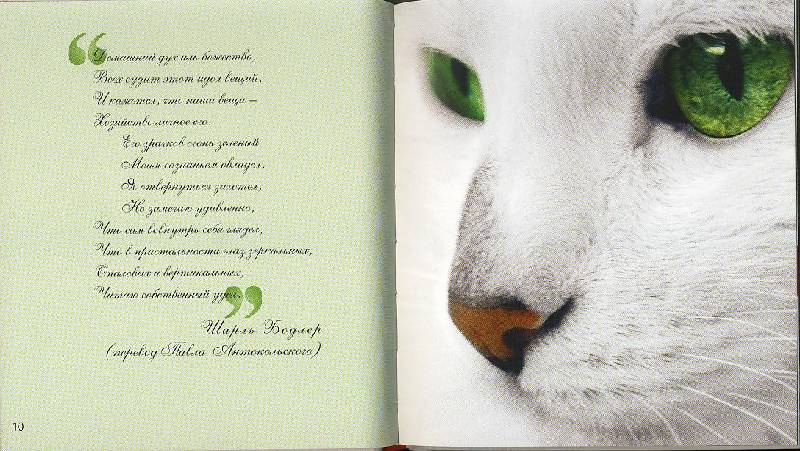 “Домашний дух иль божество,
Всех судит этот идол вещий,
И кажется, что наши вещи —
Хозяйство личное его.
Его зрачков огонь зеленый
Моим сознаньем овладел.
Я отвернуться захотел,
Но замечаю удивленно,
Что сам вовнутрь себя глядел,
Что в пристальности глаз зеркальных,
Опаловых и вертикальных,
Читаю собственный удел.”
Шарль Бодлер
(перевод Павла Антокольского)
10